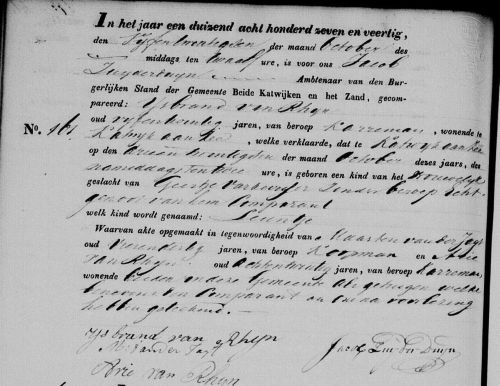 In het jaar een duizend acht honderd zeven en veertig,
den Vijfentwintigsten der maand October des
middags ten twaalf ure, is voor ons Jacob
Ambtenaar van den Bur-
gerlijken Stand der Gemeente Beide Katwijken en het Zand, gecom-
pareerd: IJsbrand van Rhijn
oud vijfentwintig jaren, van beroep Karreman, wonende te
No. 161 Katwijk aan Zee, welke verklaarde, dat te Katwijk aan Zee
op den drieentwintigsten der maand October dezes jaars, des
namiddags ten twee ure, is geboren een kind van het Vrouwelijk
geslacht van zonder beroep Echt-
genoot van hem Comparant
welk kind wordt genaamd: Leentje
Waarvan akte opgemaakt in tegenwoordigheid van Maarten van der
oud jaren, van beroep Koopman en Arie
van Rhijn oud Achtentwintig jaren, van beroep Karreman,
wonende beiden in deze Gemeente als getuigen welke
benevens den Comparant na voorlezing
hebben geteekend.
IJsbrand van Rhijn
Jacob
Arie van Rhijn